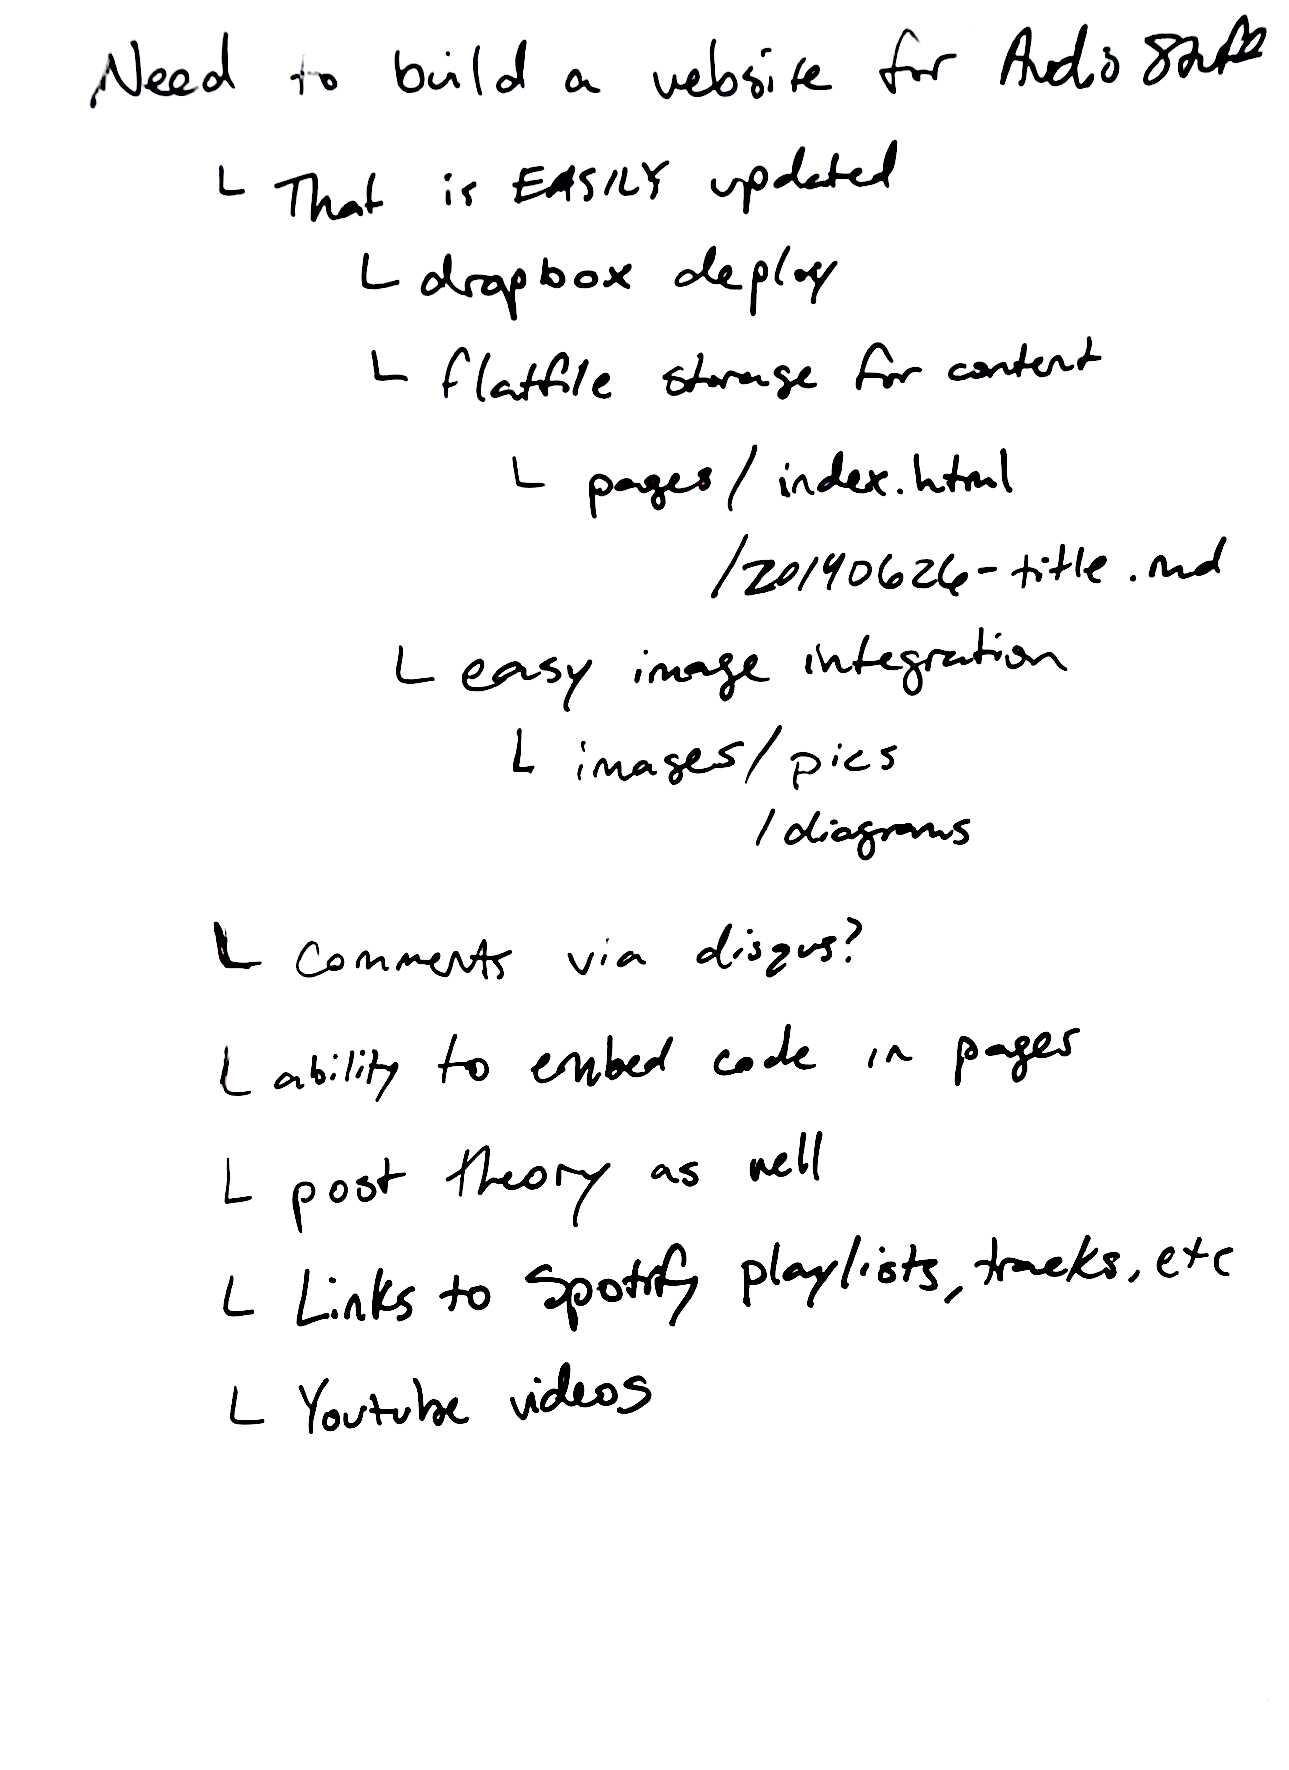 Need to build a website for Audio Stuff
└ That is EASILY updated
└ dropbox deploy
└ flatfile storage for content
└ pages/index.html
/20140626-title.md
└ easy image integration
└ images/pics
/diagrams
└ Comments via disqus?
└ ability to embed code in pages
└ post theory as well
└ Links to Spotify playlists, tracks, etc
└ Youtube videos